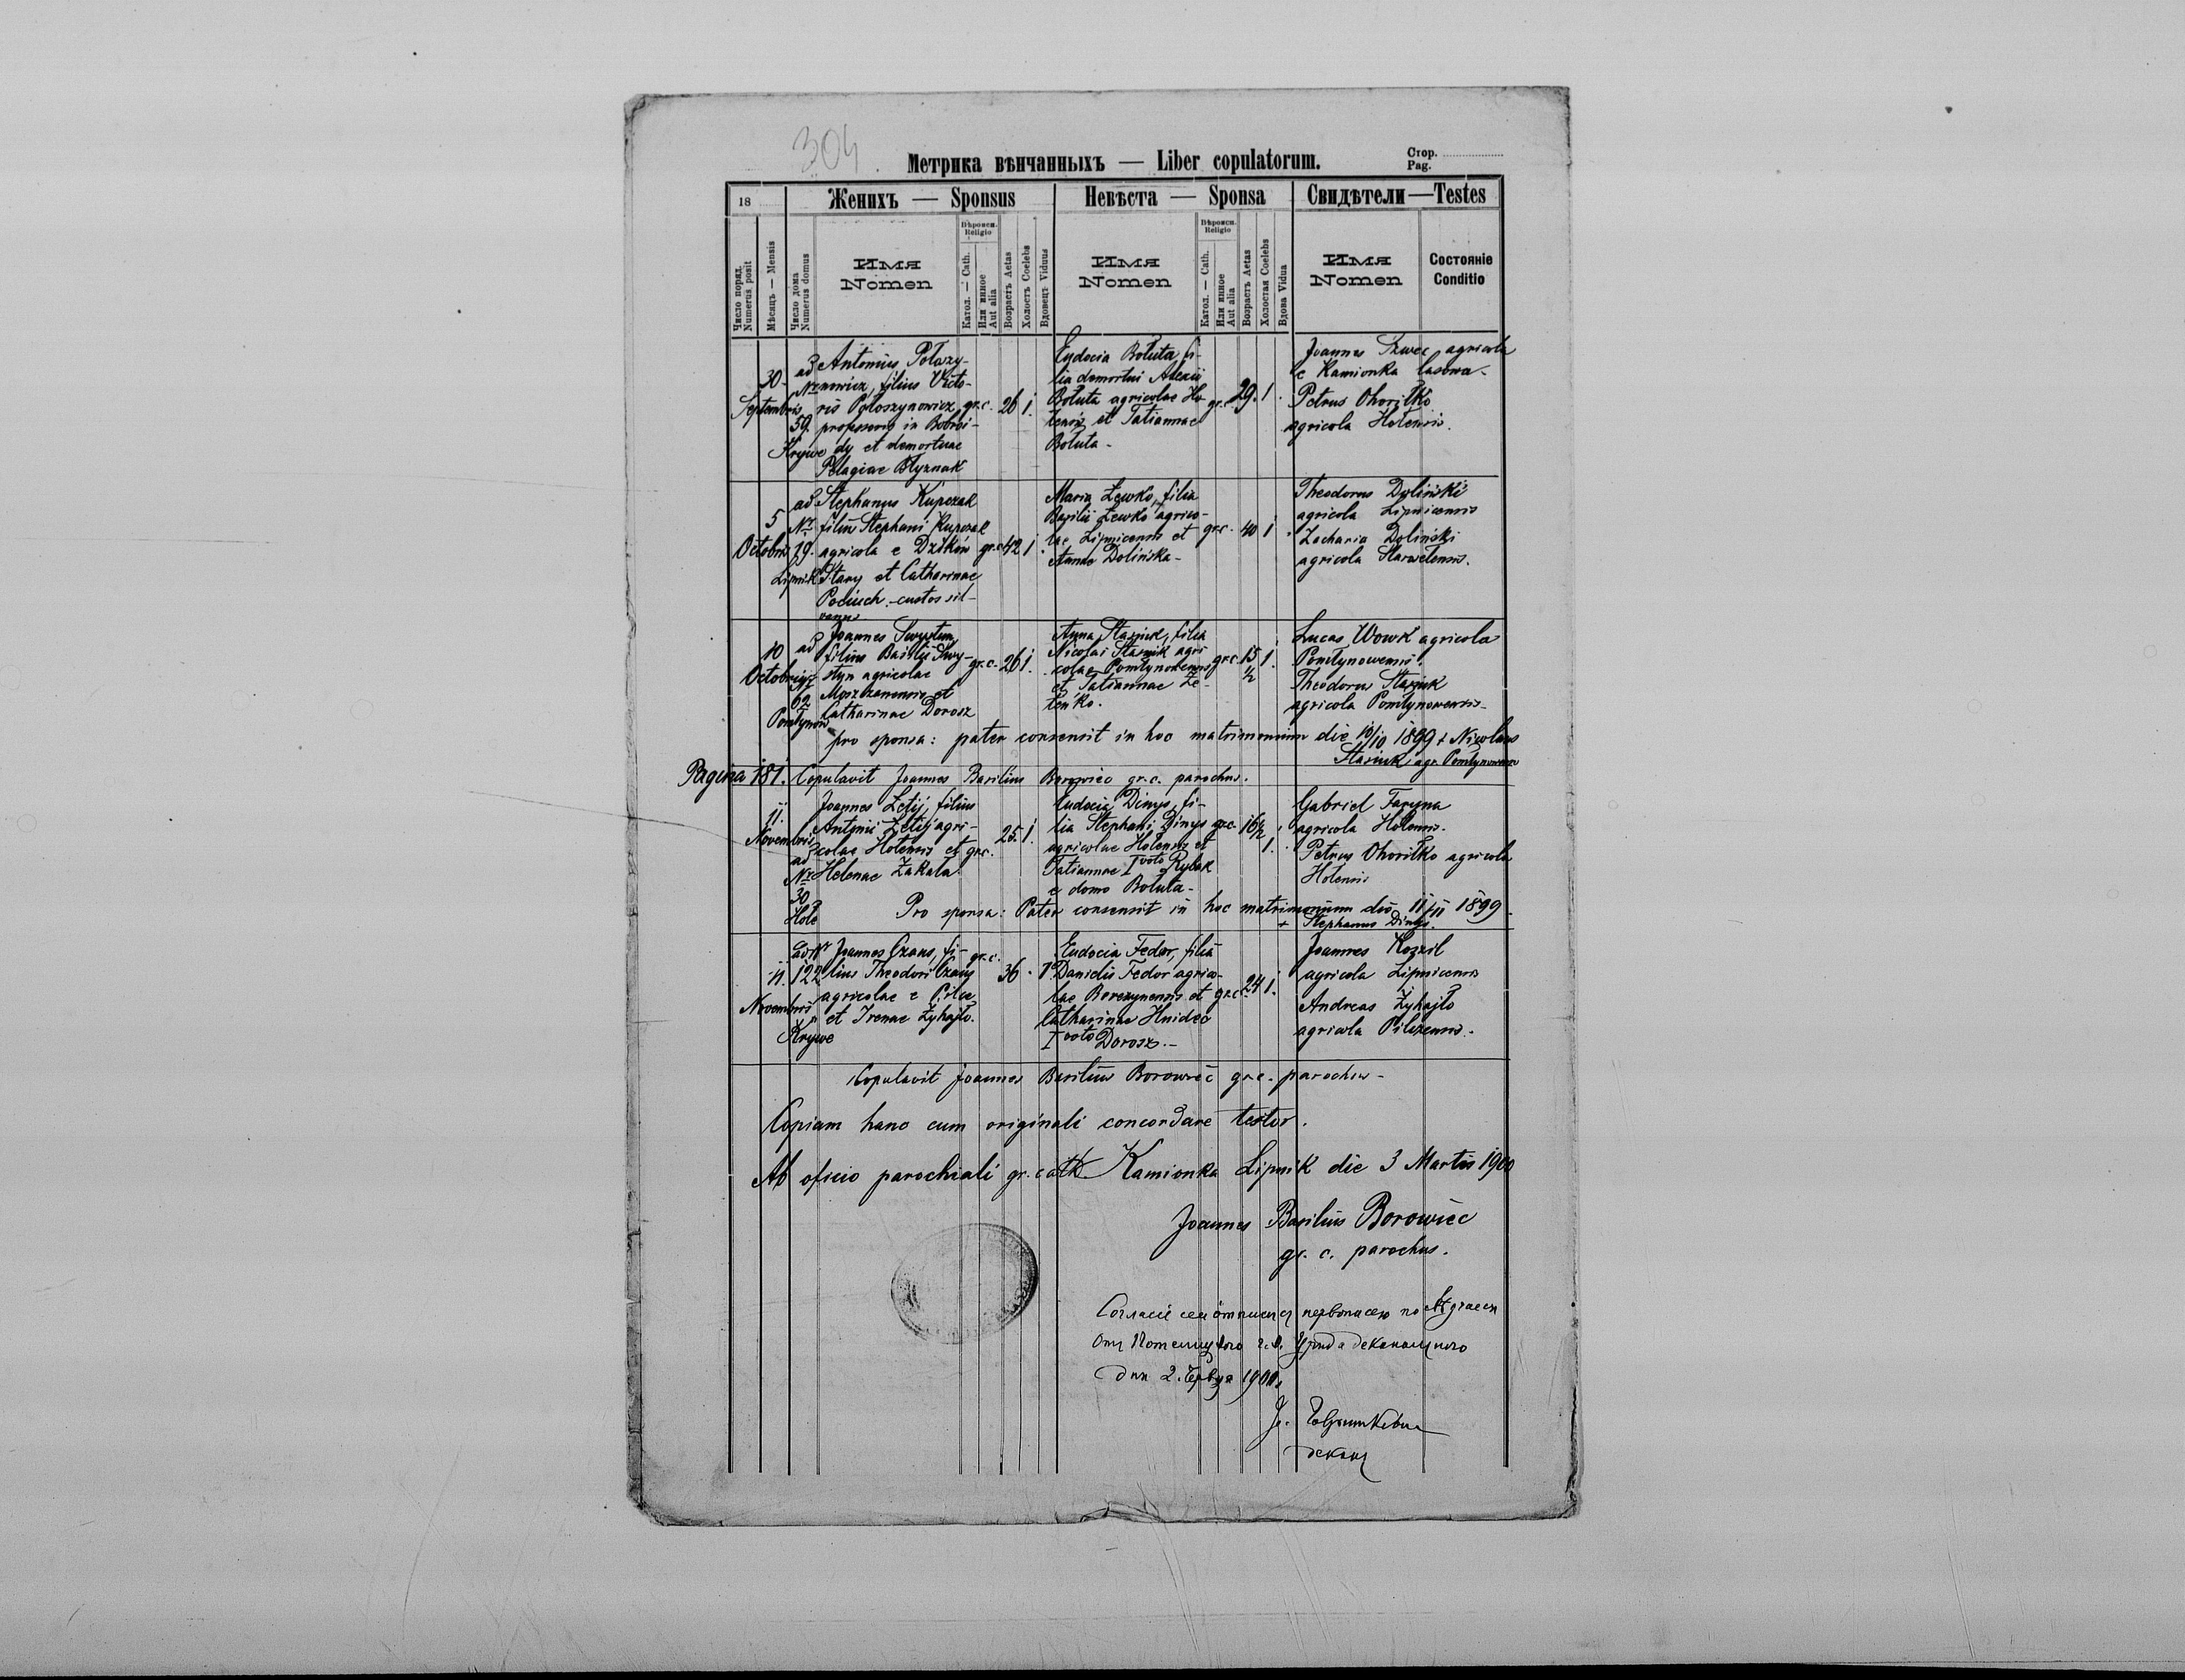 304
Метрика вѣнчанныхъ — Liber copulatorum.
Стор.
Pag.
18
Женихъ — Sponsus
Невѣста — Sponsa
Свидѣтели — Testes
Число поряд. Numerus posit
Мѣсяцъ — Mensis
Число дома Numerus domus
Имя Nomen
Вѣроисп. Religio
Катол. — Cath.
Или инное Aut alia
Возрастъ Aetas
Холостъ Coelebs
Вдовецъ Viduus
Имя Nomen
Вѣроисп. Religio
Катол. — Cath.
Или инное Aut alia
Возрастъ Aetas
Холостая Coelebs
Вдова Vidua
Имя Nomen
Состоянie Conditio
30 Septembris
ad Nr 59. Krywe
Antonius Potoszy-
nowicz, filius Victo-
ris Potoszynowicz,
professoris in Bobroi-
dy et demortuae
Pelagiae Blyznak
gr.c. 26 1.
Eudocia Boluta, fi-
lia demortui Alexii
Boluta agricolae Ho-
lensis et Tatiannae
Boluta -
gr.c. 29. 1.
Joannes Szwec agricola
e Kamionka lasowa -
Petrus Ohoriłko
agricola Holensis.
5 Octobris
ad Nr 79. Lipnik
Stephanus Kupczak
filius Stephani Kupczak
agricola e Dzików
Stary et Catharinae
Pociuch - custos sil-
vanus
gr.c. 42 1.
Maria Lewko, filia
Basilii Lewko agrico-
lae Lipnicensis et
Annae Dolińska -
gr.c. 40 1.
Theodorus Doliński
agricola Lipnicensis
Zacharia Doliński
agricola Starwelensis.
10 Octobris
ad Nr 62 Pomłynow
Joannes Swystun,
filius Basilii Swy-
styn agricolae
Moszczanensis et
Catharinae Dorosz
gr.c. 26 1.
Anna Stasiuk, filia
Nicolai Stasiuk agri-
colae Pomłynowensis
et Tatiannae Ze-
lenko.
gr.c. 15 1/2 1.
Lucas Wowk agricola
Pomłynowensis.
Theodorus Stasiuk
agricola Pomłynowensis -
pro sponsa: pater consensit in hoc matrimonium die 10/10 1899 + Nicolaus
Stasiuk agr. Pomłynowensis
Pagina 181. Copulavit Joannes Basilius Borowiec gr.c. parochus.
11. Novembris
ad Nr 30 Hole
Joannes Letij, filius
Antonii Letij agri-
colae Holensis et
Helenae Zakala.
gr.c. 25. 1.
Eudocia Dinys, fi-
lia Stephani Dinys
agricolae Holensis et
Tatiannae I voto Rybak
e domo Boluta -
gr.c. 16 1/2 1.
Gabriel Faryna
agricola Holensis.
Petrus Ohoriłko agricola
Holensis
Pro sponsa: Pater consensit in hoc matrimonium die 11/11 1899
+ Stephanus Dinys.
11. Novembris
ad Nr 122 Krywe
Joannes Czaus, fi-
lius Theodori Czaus
agricolae e Pilce
et Irenae Żyhajło.
gr.c. 36 · 1
Eudocia Fedor, filia
Danielis Fedor agrico-
lae Borezynensis et
Catharinae Hnidec
I voto Dorosz. -
gr.c. 24 1.
Joannes Kozil
agricola Lipnicensis
Andreas Żyhajło
agricola Pilczensis.
Copulavit Joannes Basilius Borowiec gr.c. parochus -
Copiam hanc cum originali concordare testor.
Ab oficio parochiali gr. cath. Kamionka Lipnik die 3 Martis 1900
Joannes Basilius Borowiec
gr. c. parochus.
дня 2. Червця 1900.
деканъ